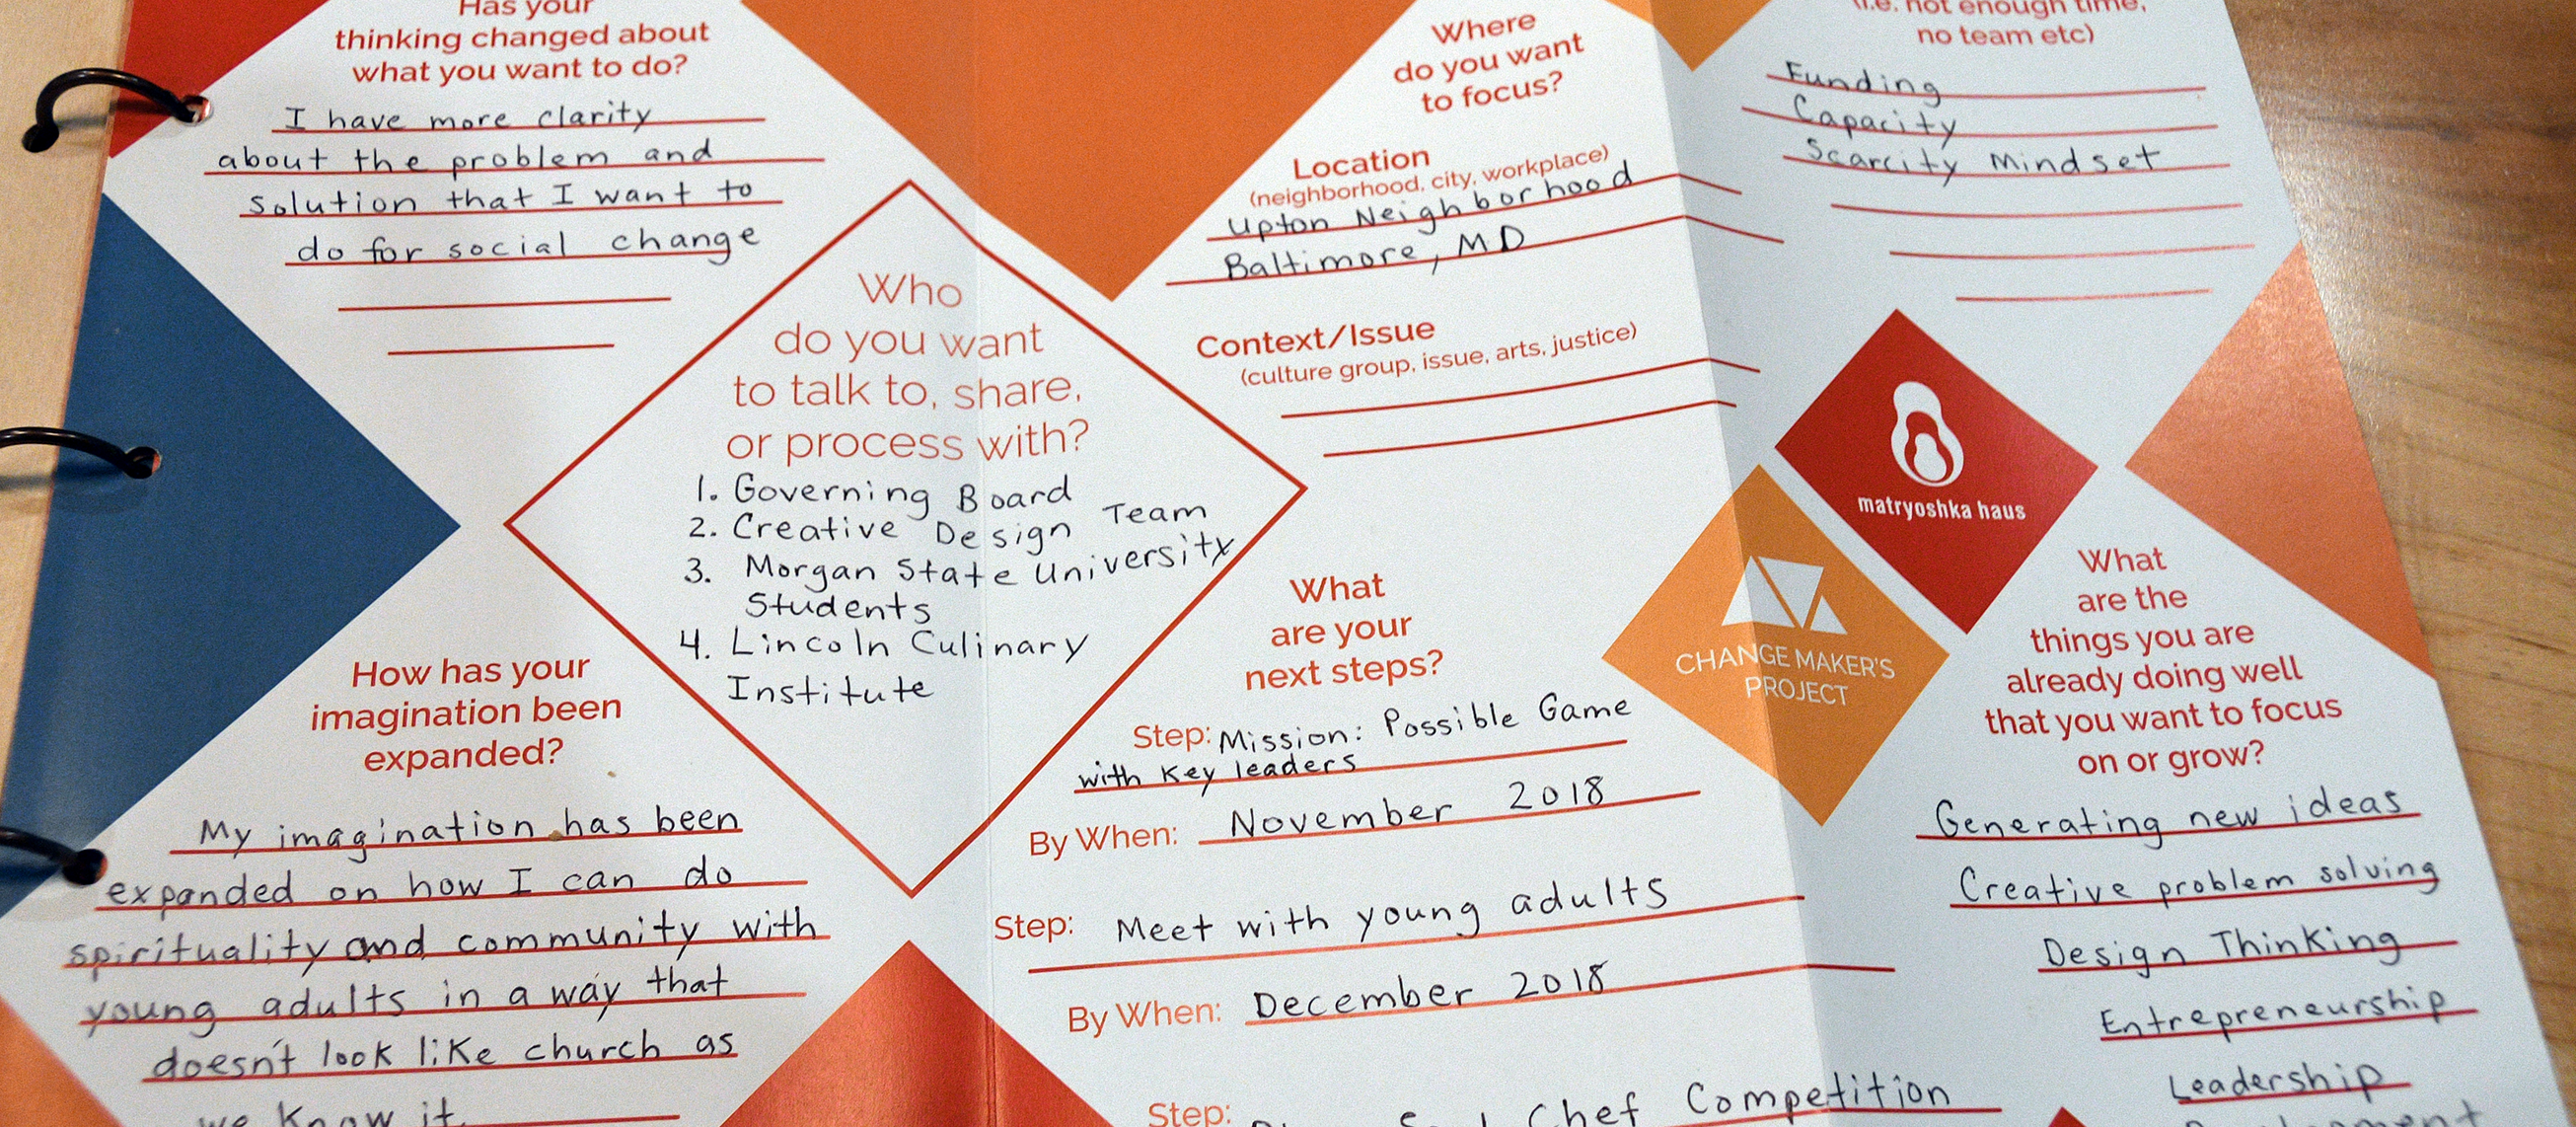 Has your
thinking changed about
what you want to do?
I have more clarity
about the problem and
solution that I want to
do for social change
How has your
imagination been
expanded?
My imagination has been
expanded on how I can do
spirituality and community with
young adults in a way that
doesn't look like church as
we know it
Who
do you want
to talk to, share,
or process with?
1. Governing Board
2. Creative Design Team
3. Morgan State University
Students
4. Lincoln Culinary
Institute
Where
do you want
to focus?
Location
(neighborhood, city, workplace)
Upton Neighborhood
Baltimore, MD
Context/Issue
(culture group, issue, arts, justice)
What
are your
next steps?
Step: Mission: Possible Game
with Key leaders
By When: November 2018
Step: Meet with young adults
By When: December 2018
Step: Chef Competition
(i.e. not enough time,
no team etc)
Funding
Capacity
Scarcity Mindset
matryoshka haus
CHANGE MAKER'S
PROJECT
What
are the
things you are
already doing well
that you want to focus
on or grow?
Generating new ideas
Creative problem solving
Design Thinking
Entrepreneurship
Leadership